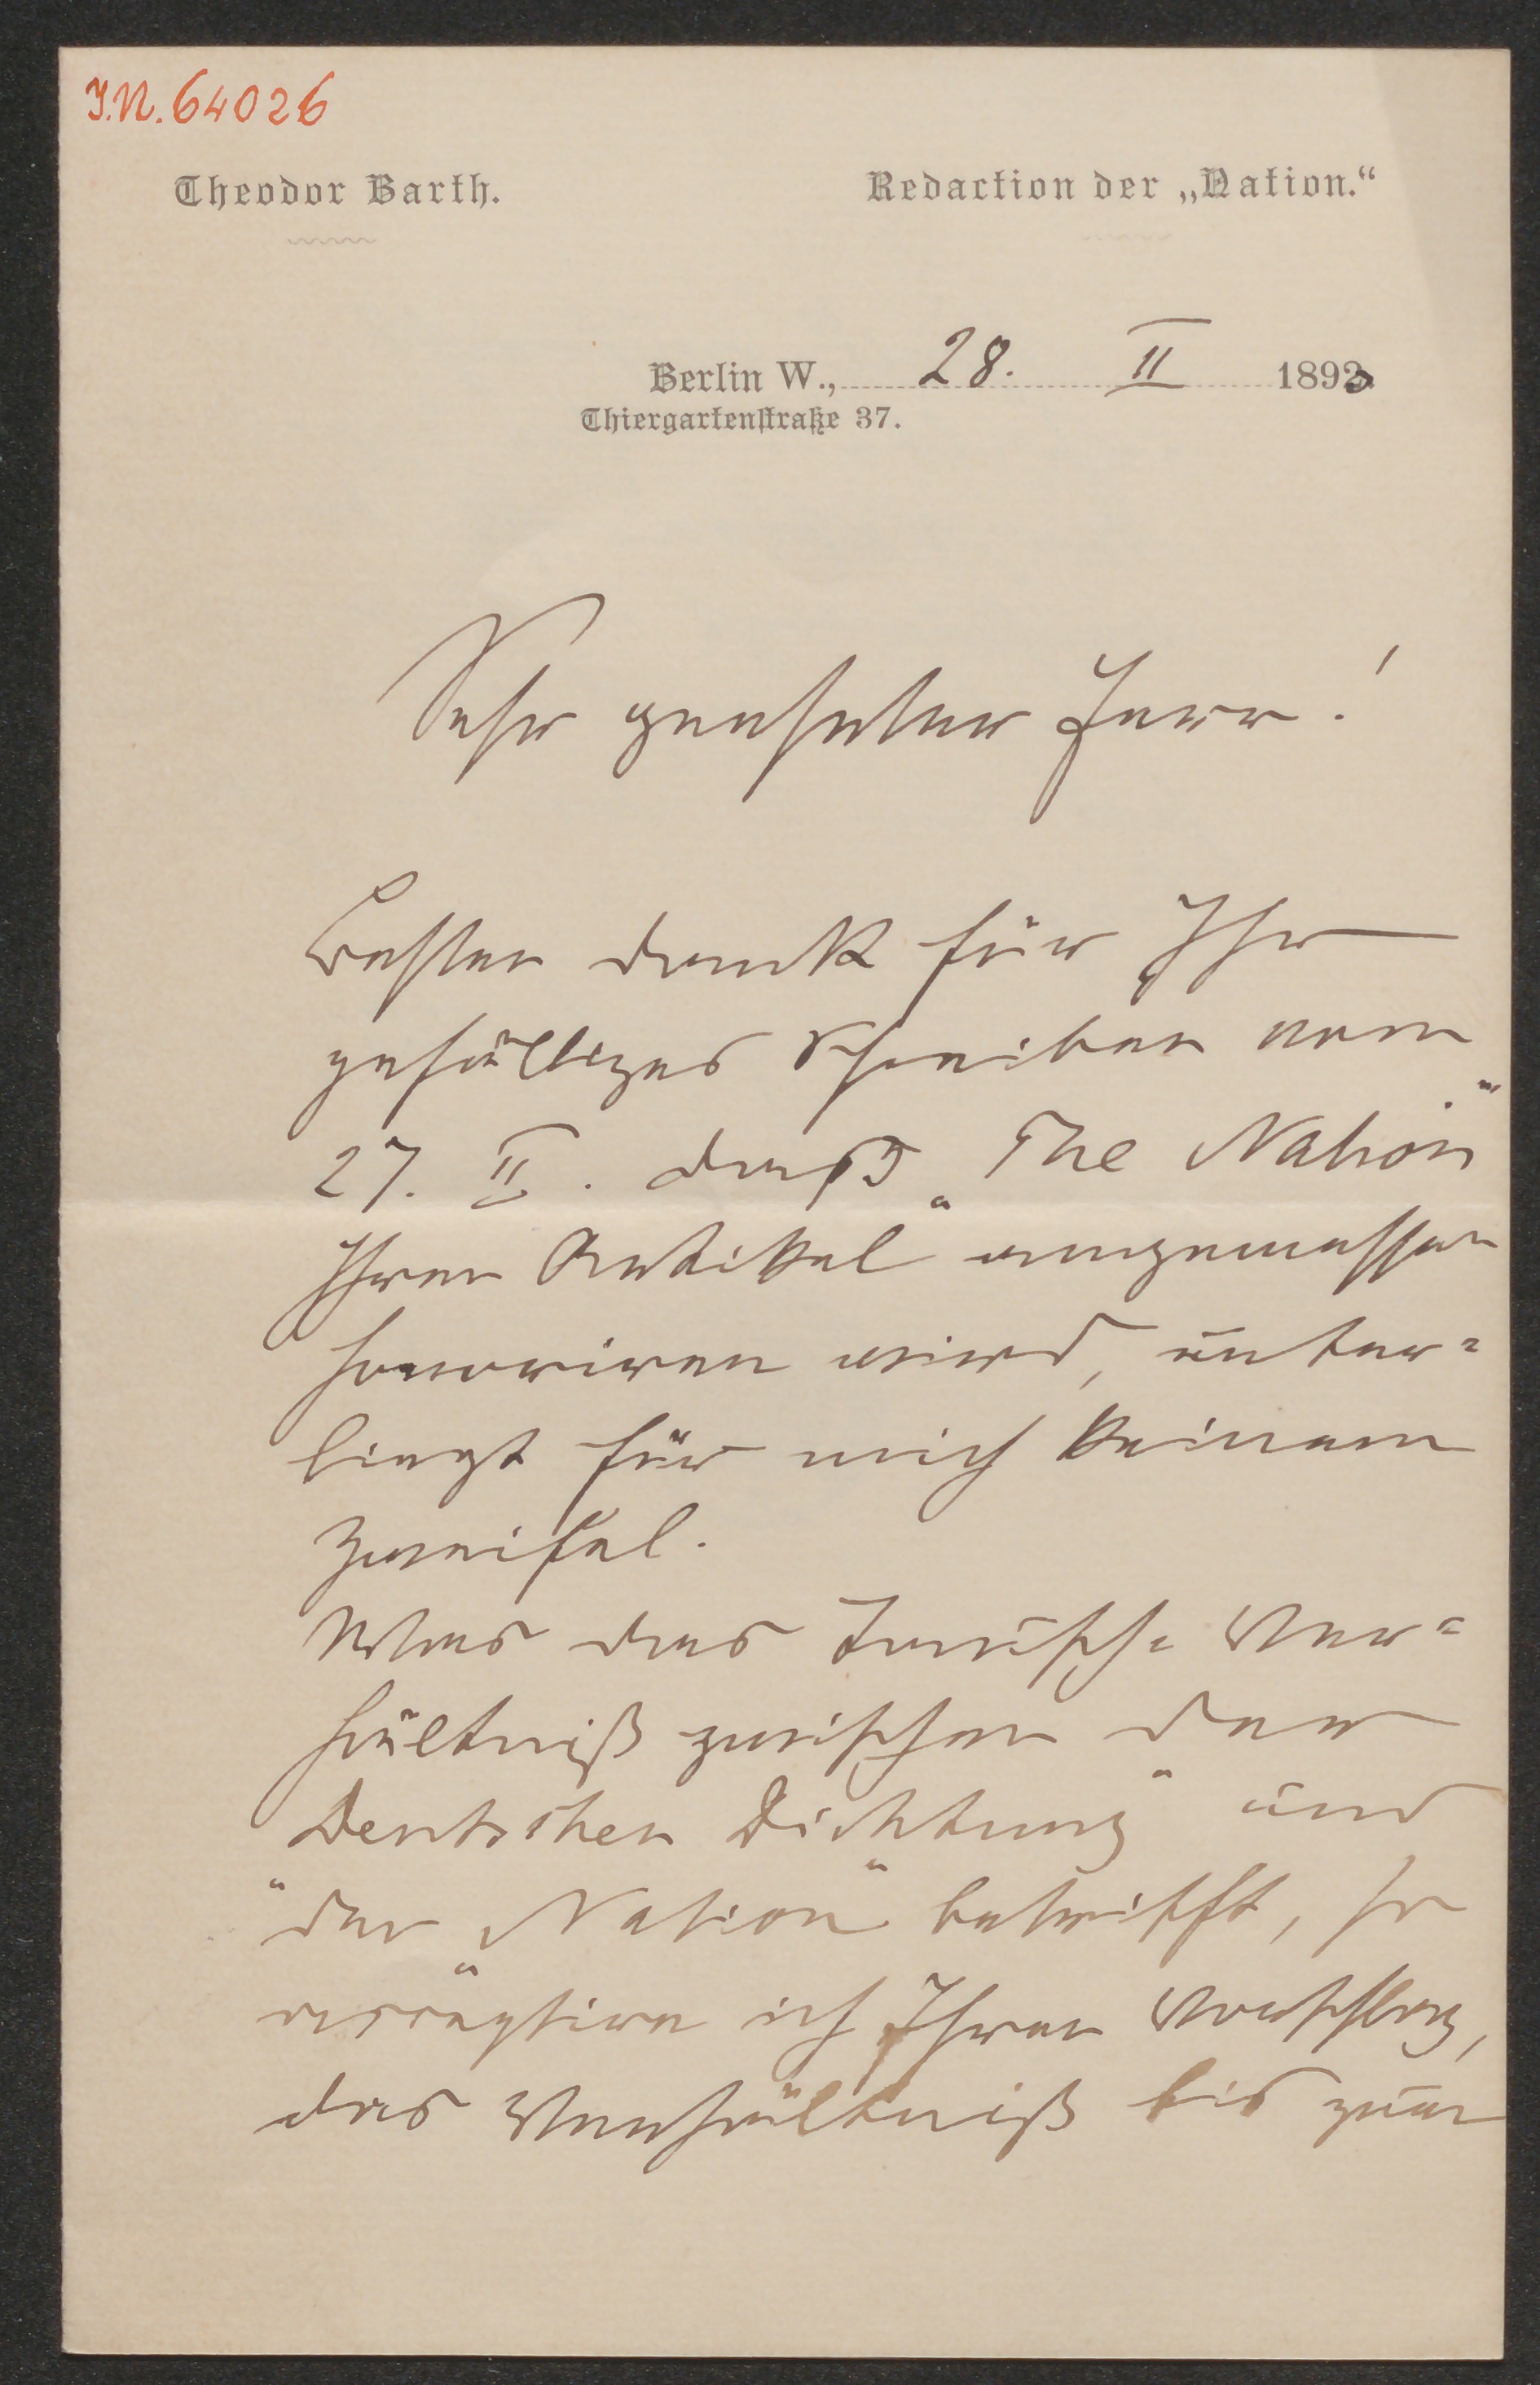 I.N. 64026
Theodor Barth.
Redaction der „Nation.“
Berlin W., 28. II 1893
Thiergartenstraße 37.
Sehr geehrter Herr!
Besten Dank für Ihr
gefälliges Schreiben vom
27. II. Daß „The Nation“
Ihren Artikel angemessen
honoriren wird, unter=
liegt für mich keinem
Zweifel.
Was das Tausch= Ver=
hältniß zwischen der
„Deutschen Dichtung“ und
„der Nation“ betrifft, so
acceptire ich Ihren Vorschlag,
das Verhältniß bis zum